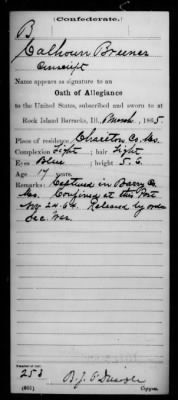 (Confederate.)
B
Calhoun Breener
Conscript
Name appears as signature to an
Oath of Allegiance
to the United States, subscribed and sworn to at
Rock Island Barracks, Ill., March, 1865
Place of residence Chareton Co. Mo.
Complexion Light ; hair Light
Eyes Blue ; height 5. 6.
Age 17 years
Remarks: Captured in Barry Co
Mo. Confined at the Post
Nov 24. 64. Released by order
Sec. War.
Number of roll:
253
(601)
Copyist.